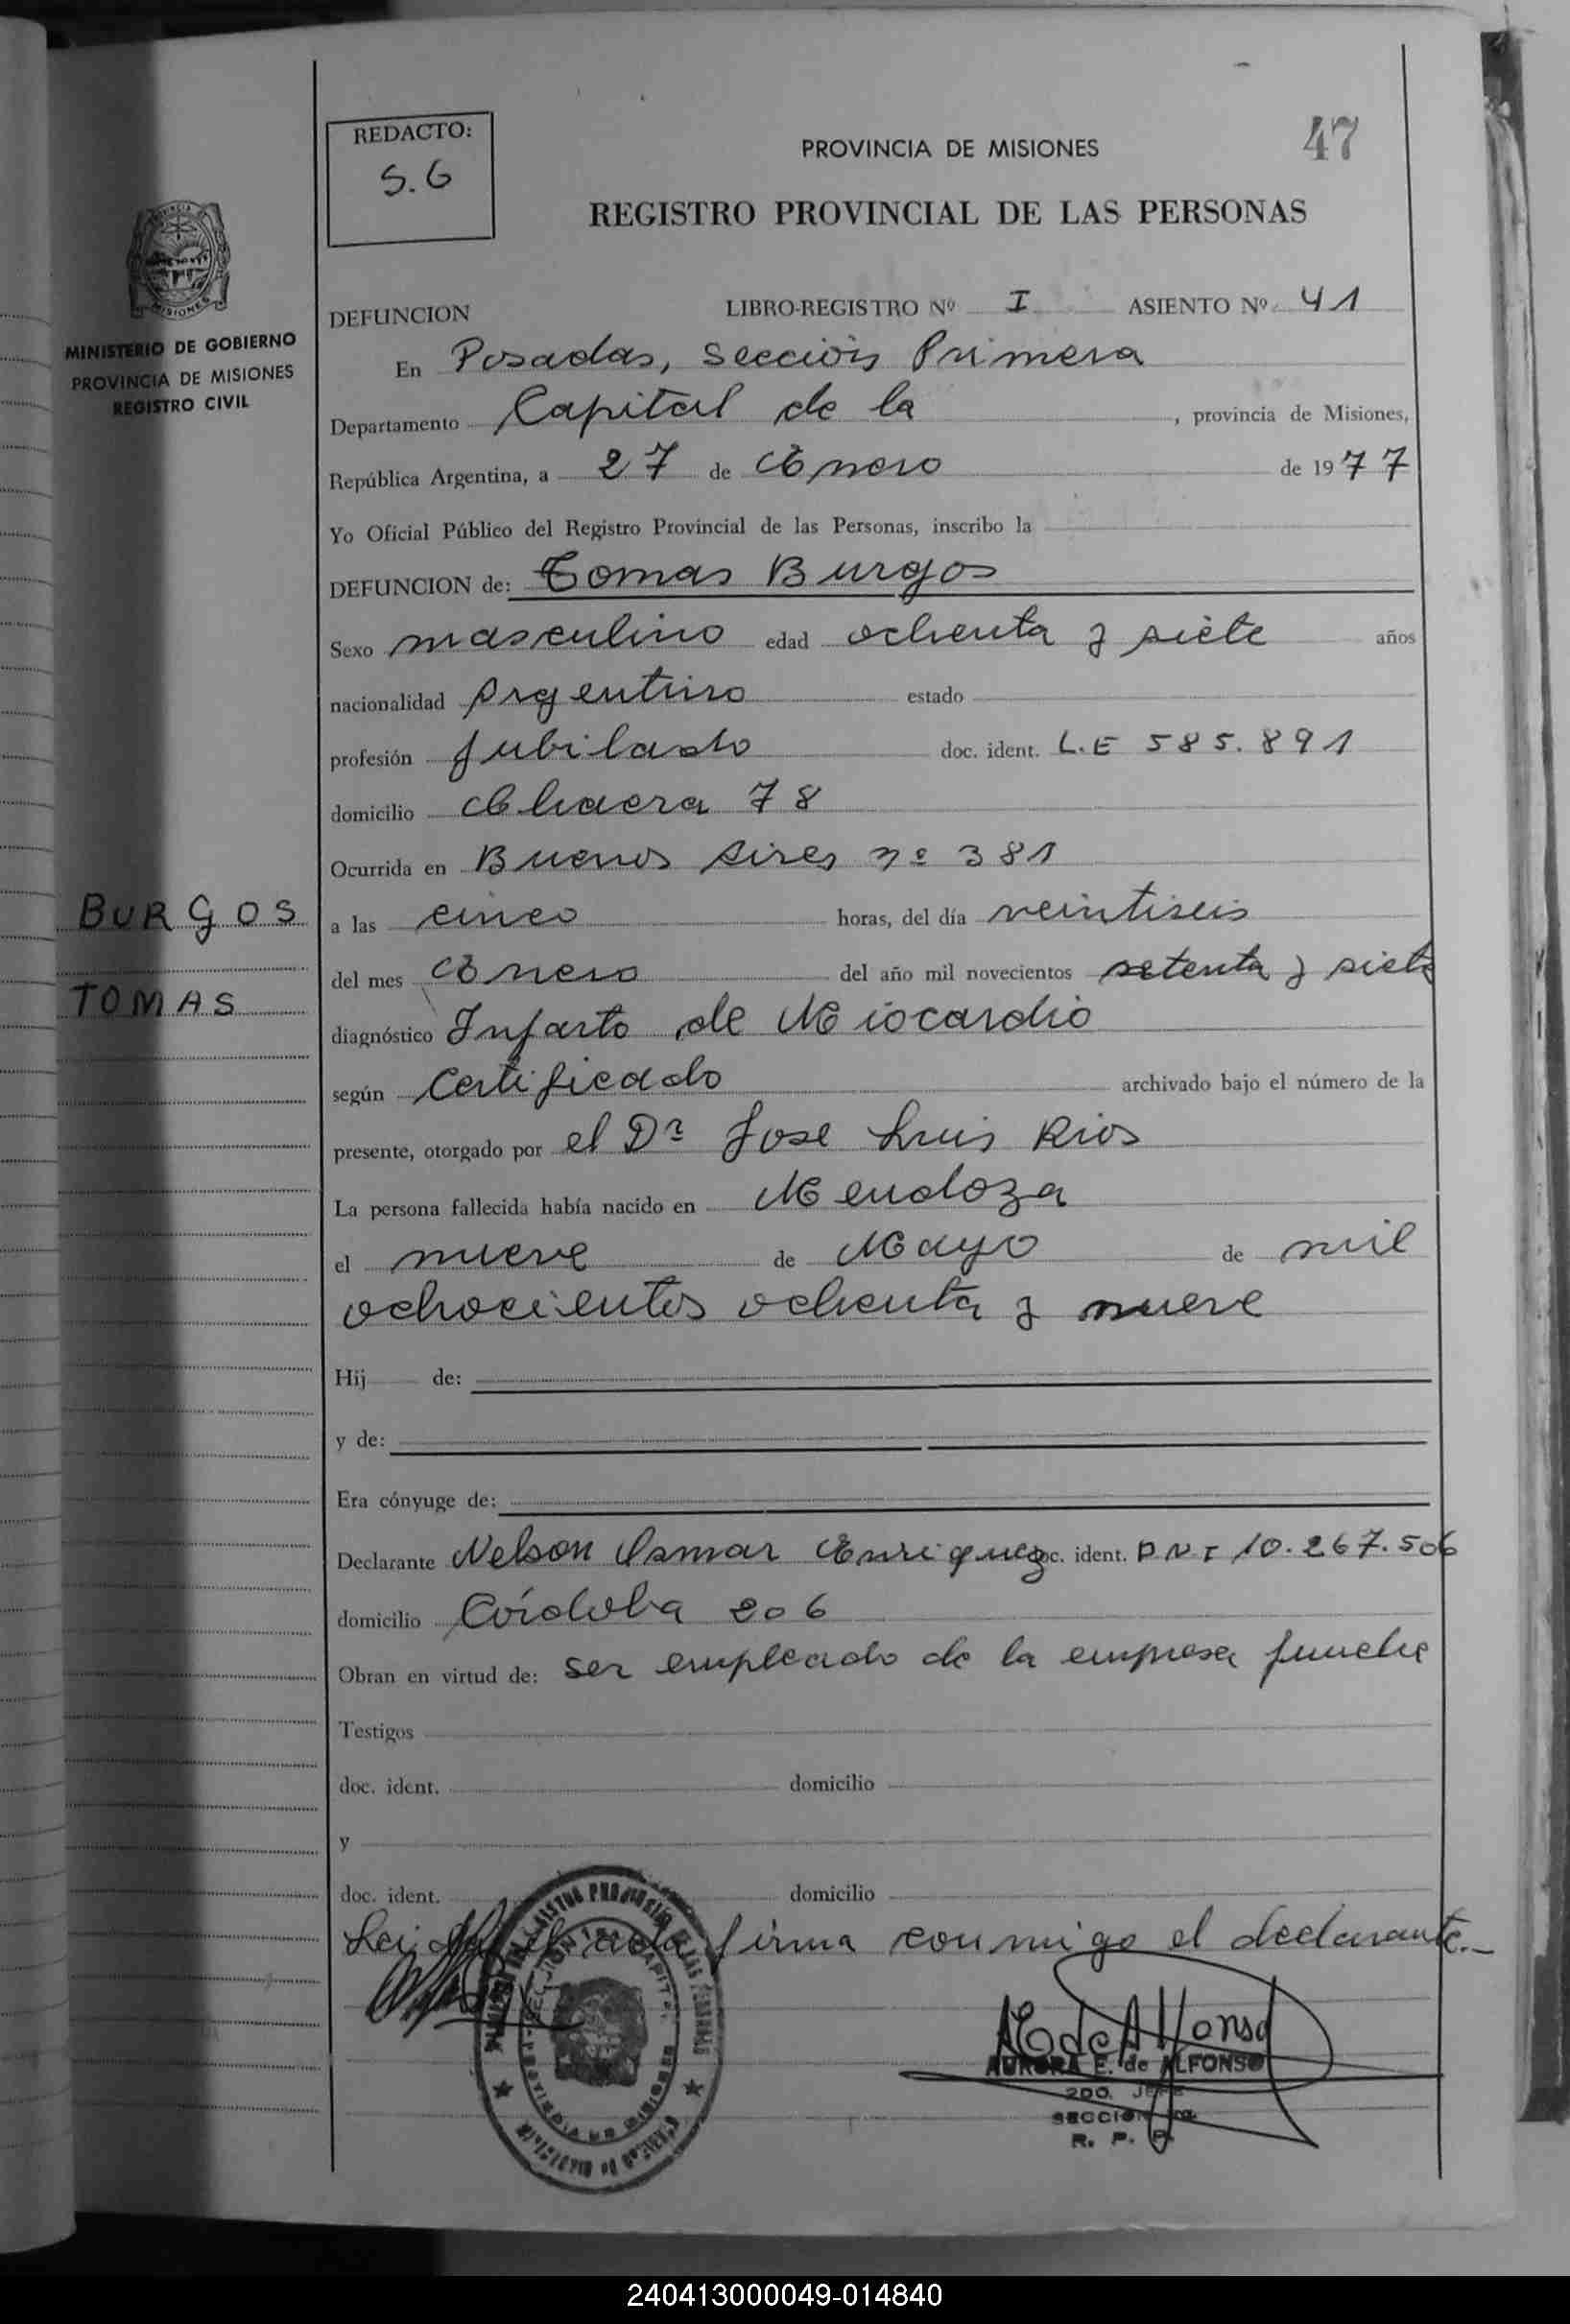 REDACTO:
S.G
PROVINCIA DE MISIONES
47
REGISTRO PROVINCIAL DE LAS PERSONAS
MINISTERIO DE GOBIERNO
PROVINCIA DE MISIONES
REGISTRO CIVIL
DEFUNCION LIBRO-REGISTRO Nº I ASIENTO Nº 41
En Posadas, Sección Primera
Departamento Capital de la , provincia de Misiones,
República Argentina, a 27 de Enero de 1977
Yo Oficial Público del Registro Provincial de las Personas, inscribo la
DEFUNCION de: Tomas Burgos
Sexo masculino edad ochenta y siete años
nacionalidad Argentino estado
profesión Jubilado doc. ident. L.E 585.891
domicilio Chacra 78
Ocurrida en Buenos Aires nº 381
BURGOS
a las cinco horas, del día veintiseis
del mes Enero del año mil novecientos setenta y siete
TOMAS
diagnóstico Infarto de Miocardio
según Certificado archivado bajo el número de la
presente, otorgado por el Dr Jose Luis Rios
La persona fallecida había nacido en Mendoza
el nueve de Mayo de mil
ochocientos ochenta y nueve
Hij de:
y de:
Era cónyuge de:
Declarante Nelson Osmar Enriquez doc. ident. DNI 10.267.506
domicilio Córdoba 206
Obran en virtud de: ser empleado de la empresa funebre
Testigos
doc. ident. domicilio
y
doc. ident. domicilio
Leida el acta firma conmigo el declarante.-
AURORA E. de ALFONSO
2DO. JEFE
SECCION
R. P. P.
240413000049-014840